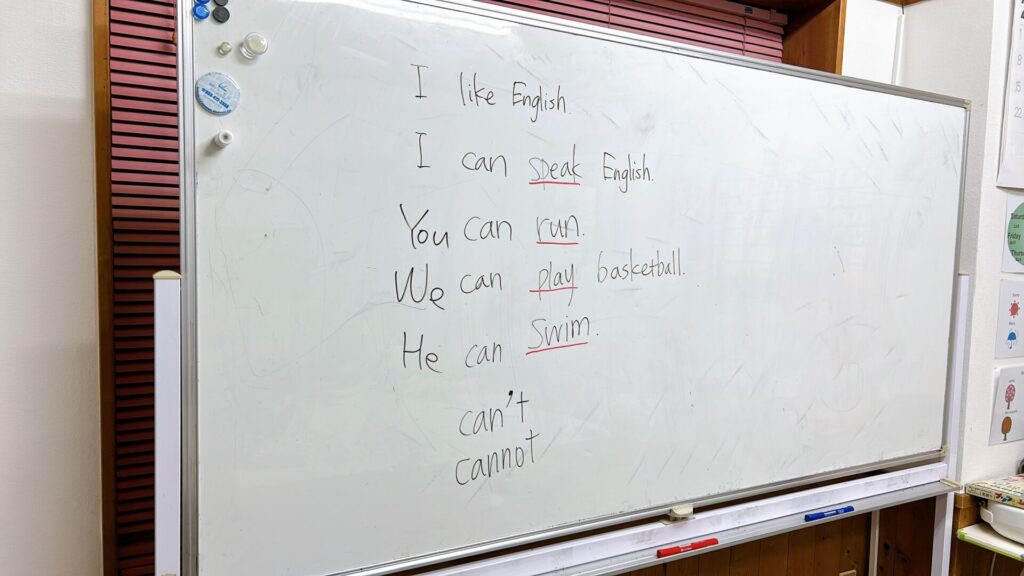 I like English.
I can speak English.
You can run.
We can play basketball.
He can swim.
can't
cannot
8
15
22
Friday